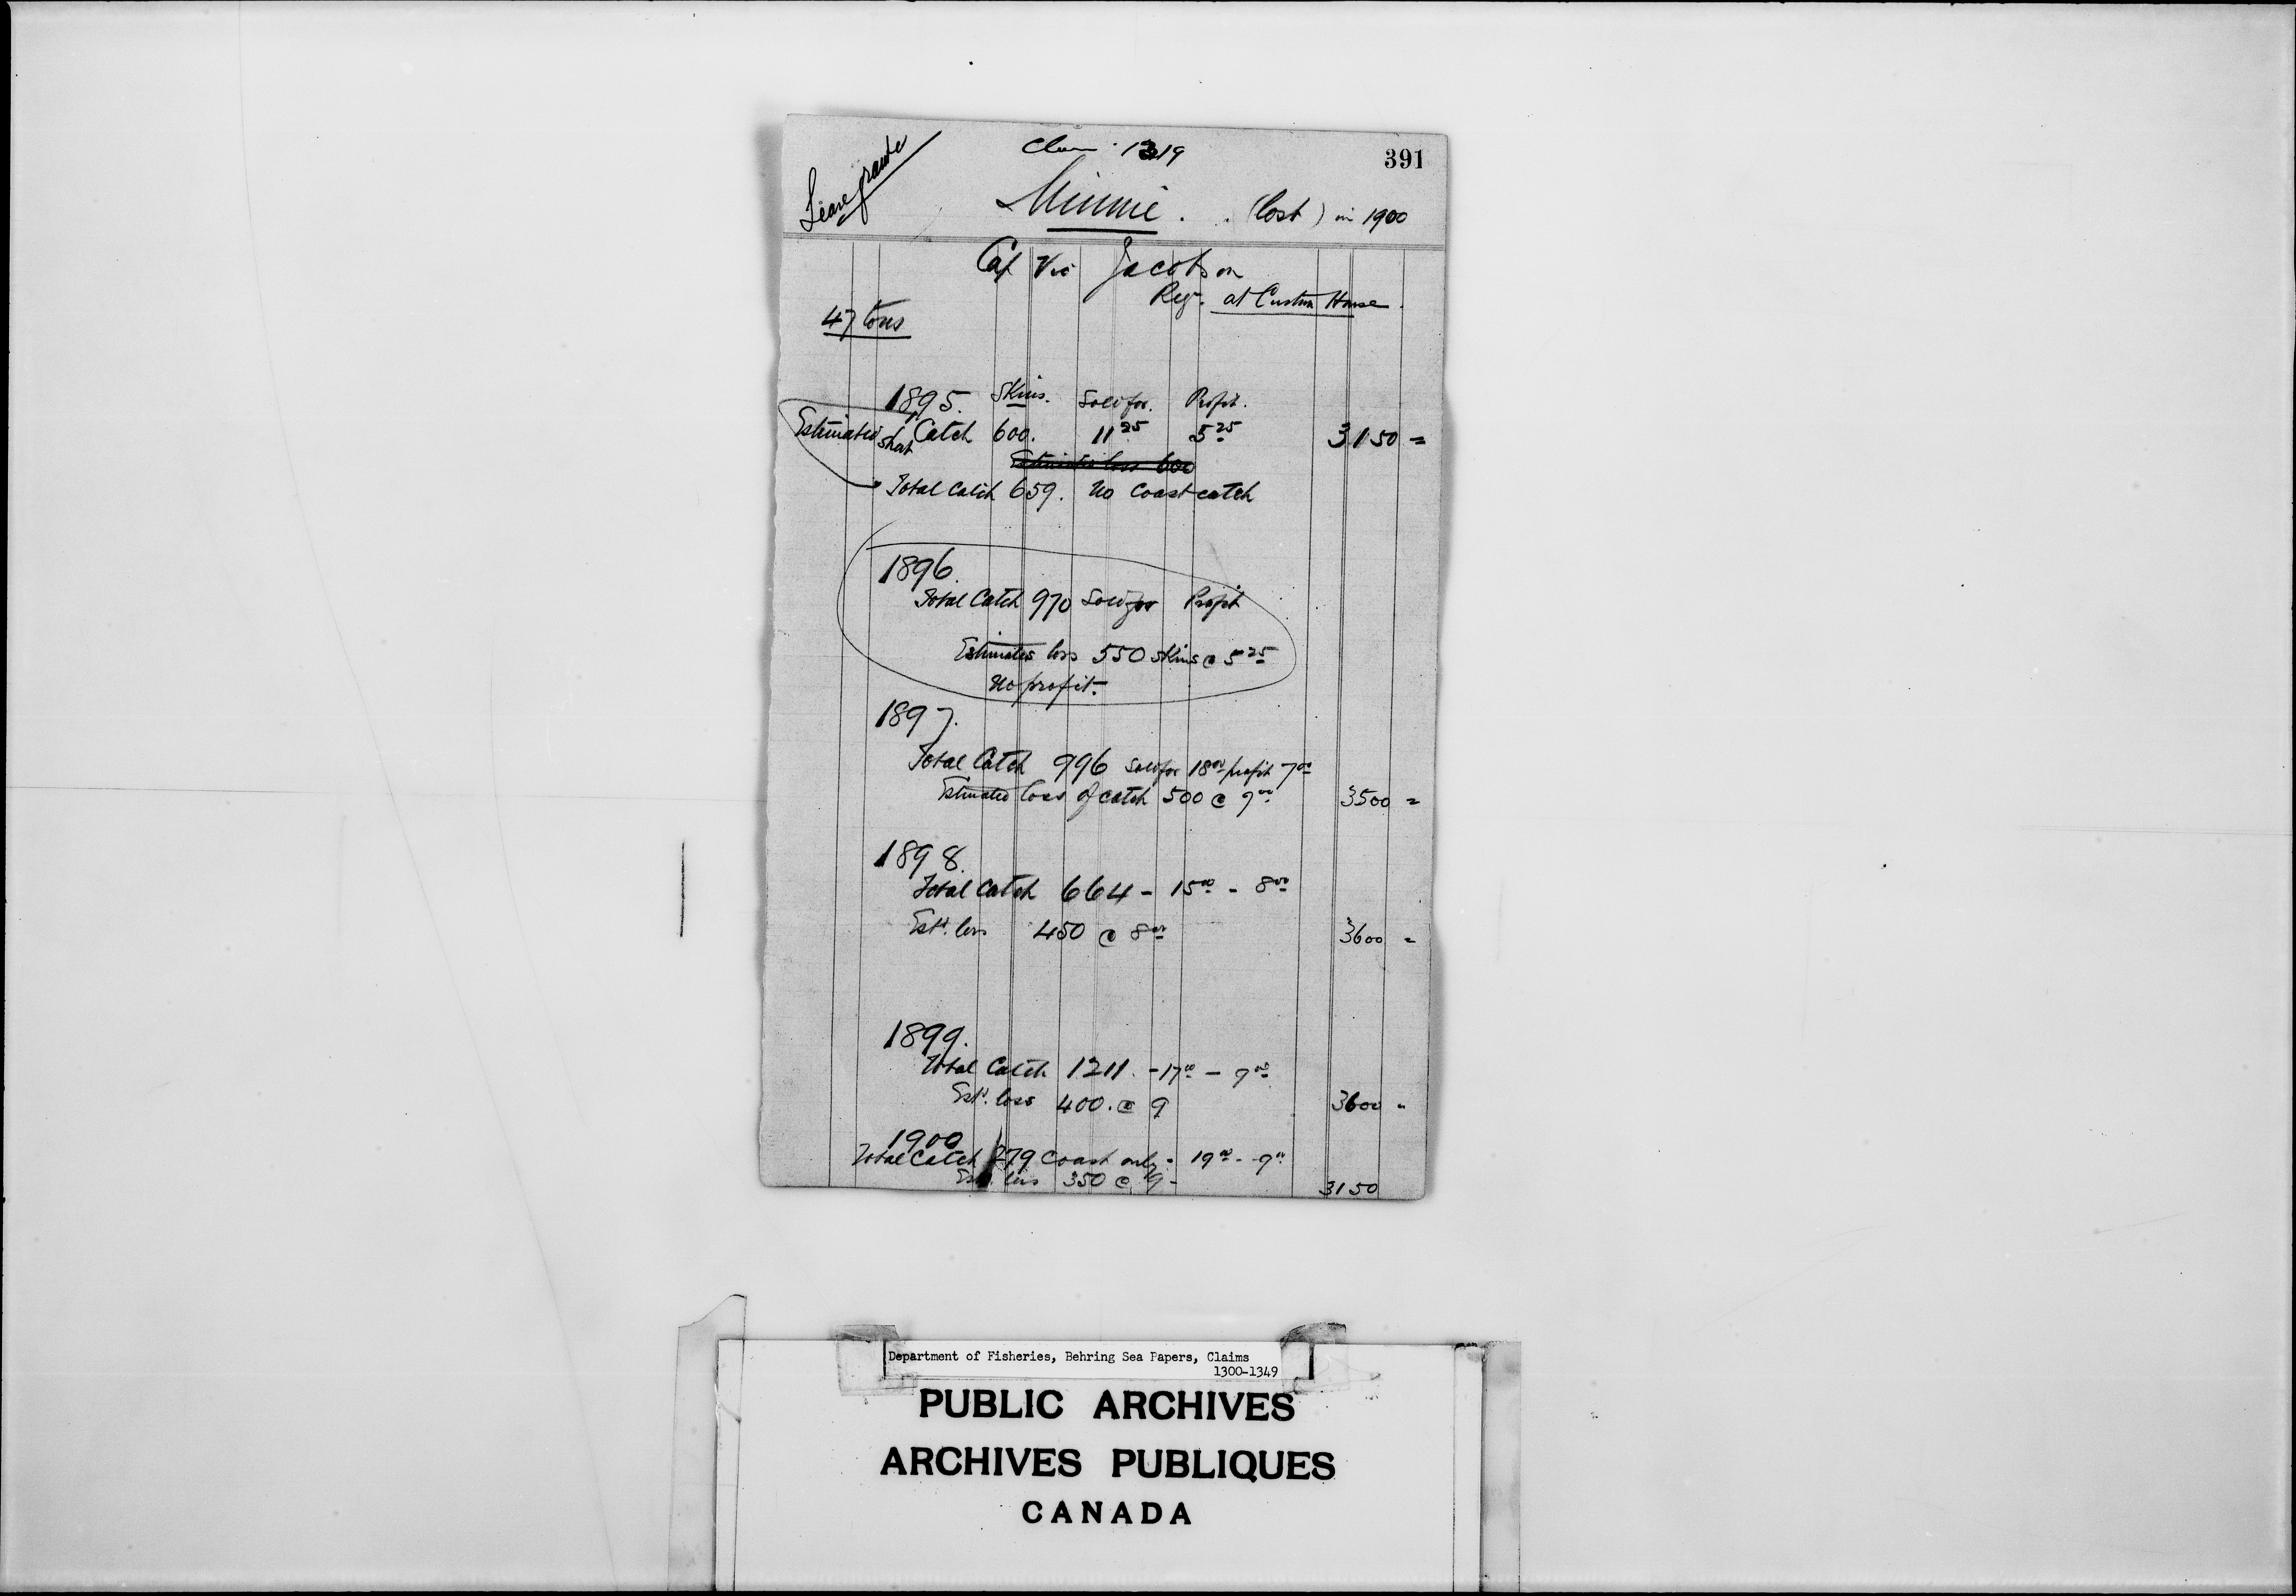 Claim 1319
391
Minnie. (lost) in 1900
Cap Vic Jacobson
Reg. at Custom House.
47 tons
1895. Skins. Sold for. Profit.
Estimated short Catch 600. 11 25 5 25 3150 =
Estimated loss 600
Total Catch 659. No Coast catch
1896.
Total Catch 970 Sold for Profit
Estimated loss 550 skins @ 5 25
No profit.
1897.
Total Catch 996 sold for 18 00 profit 7 00
Estimated loss of catch 500 @ 7 00 3500 =
1898.
Total Catch 664 - 15 00 - 8 00
Estd. loss 450 @ 8 00 3600 =
1899.
Total Catch 1211. - 17 00 - 9 00
Estd. loss 400. @ 9 3600 "
1900
Total Catch 279 Coast only - 19 00 - 9 00
Est. loss 350 @ 9 - 3150
Department of Fisheries, Behring Sea Papers, Claims
1300-1349
PUBLIC ARCHIVES
ARCHIVES PUBLIQUES
CANADA